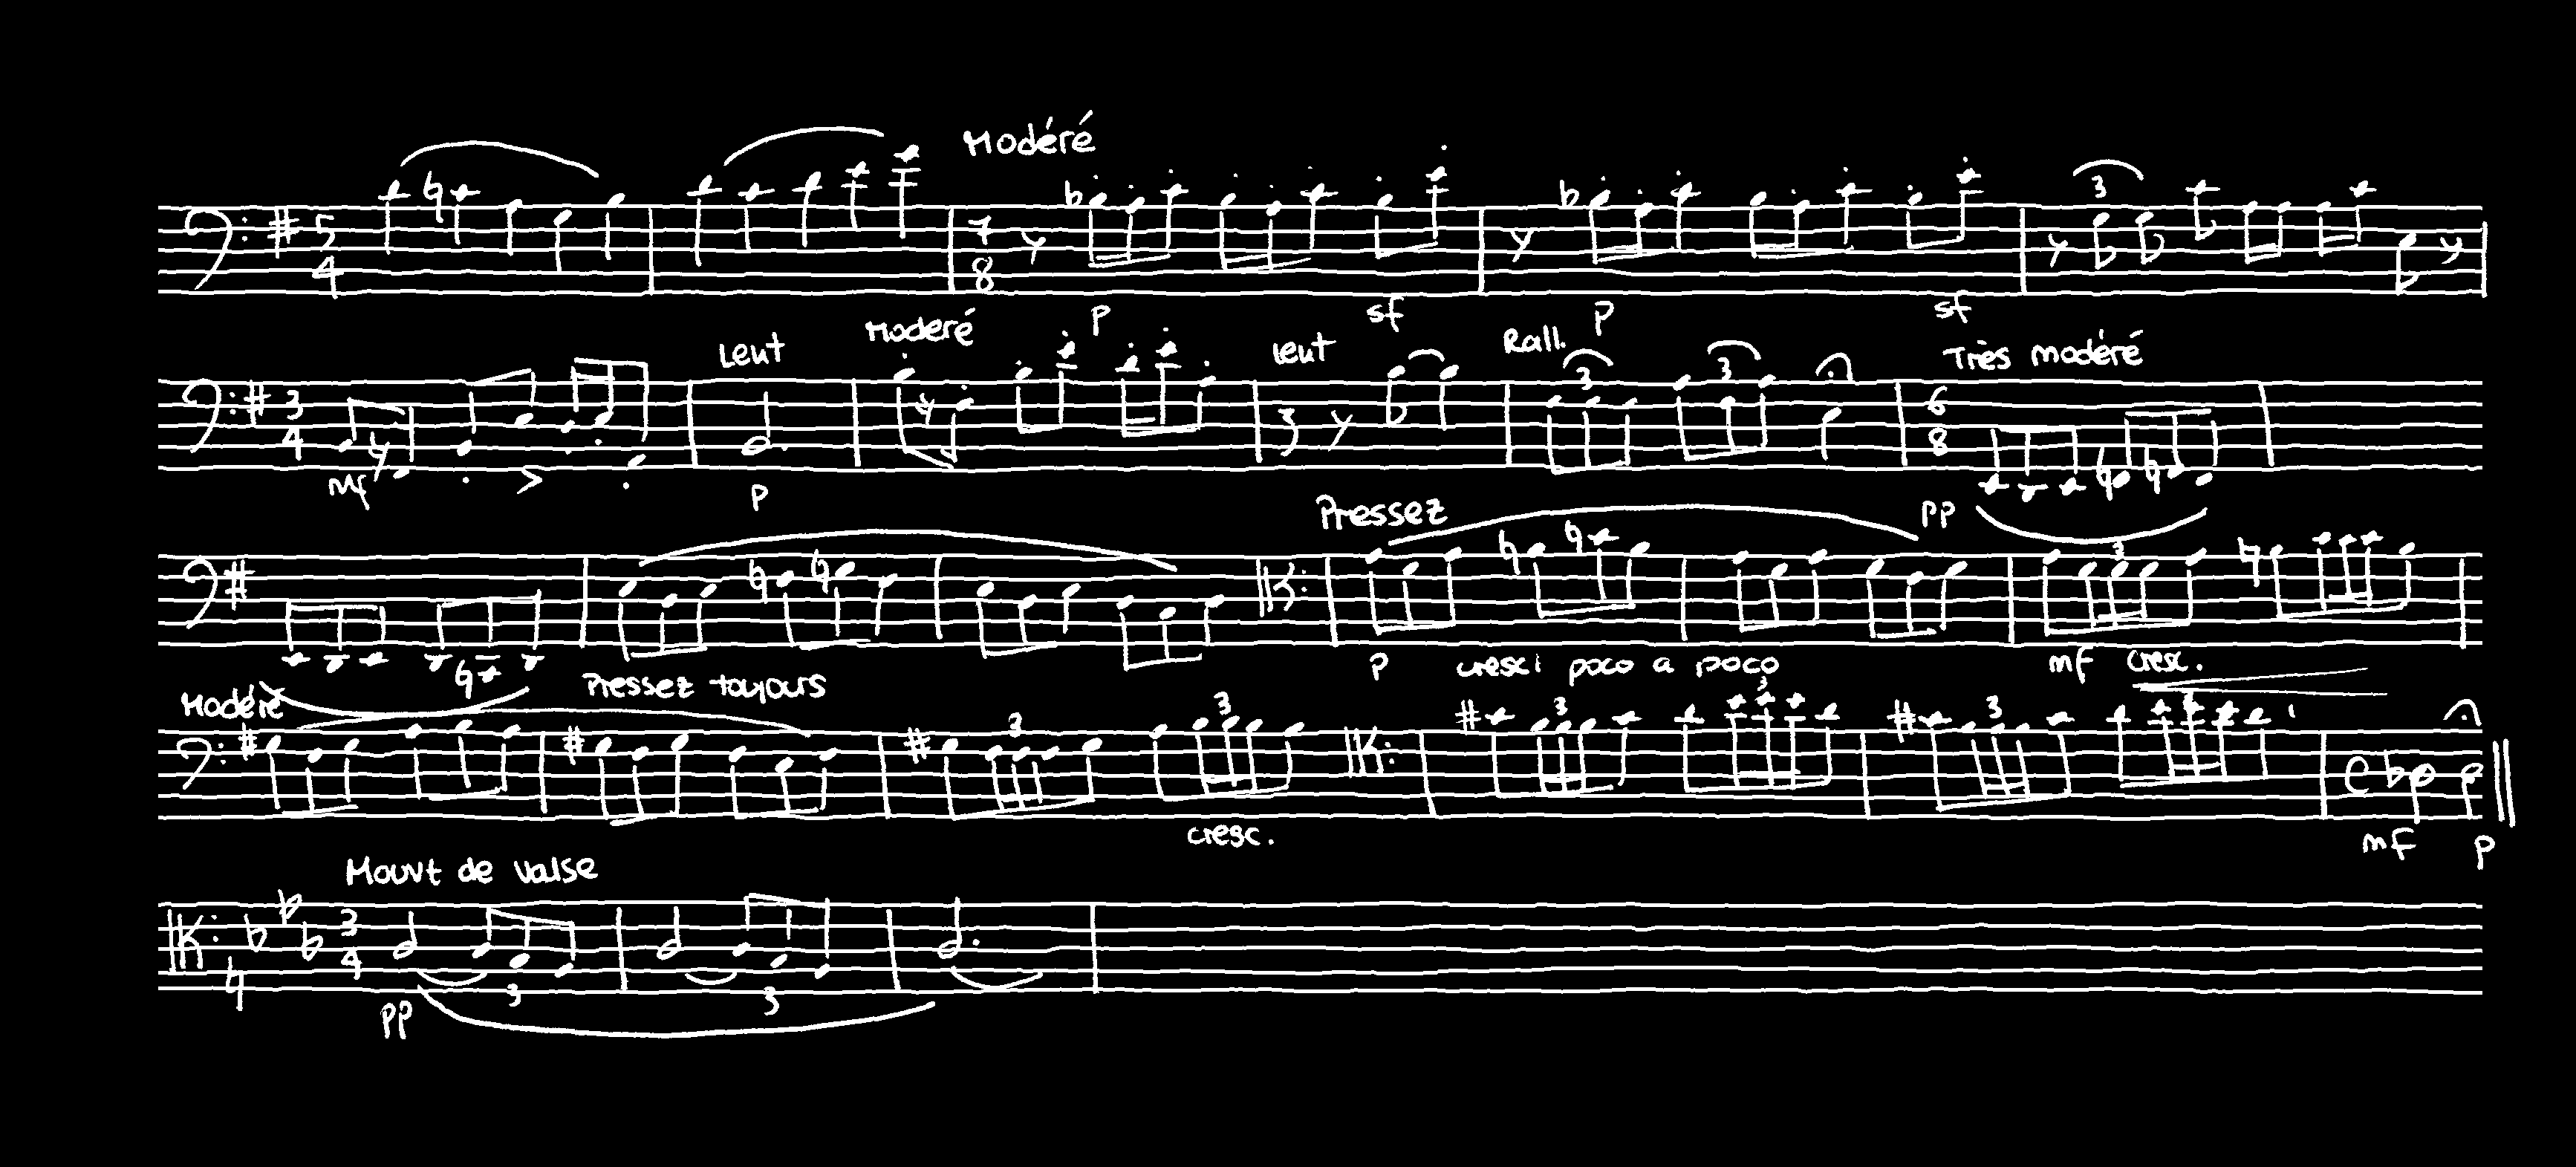 Modéré
5 4 7 8 3
p sf p sf
Lent Moderé Lent Rall. Très modéré
3 4 3 3 6 8
mf p pp
Pressez
3
p cresci poco a poco mf cresc.
Modéré Pressez toujours
3 3 3 3 3 3
cresc. mf p
Mouvt de valse
3 4
pp 3 3